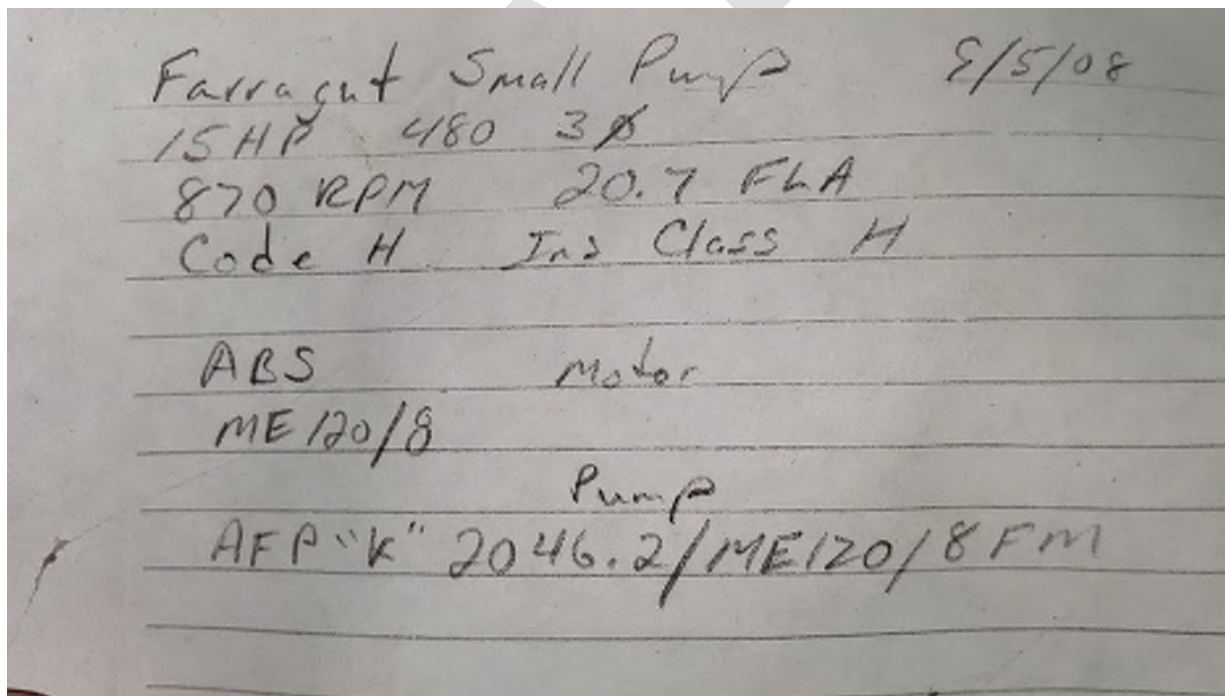 Farragut Small Pump 8/5/08
15 HP 480 3Ø
870 RPM 20.7 FLA
Code H Ins Class H
ABS Motor
ME 120/8
Pump
AFP "K" 2046.2/ME120/8FM